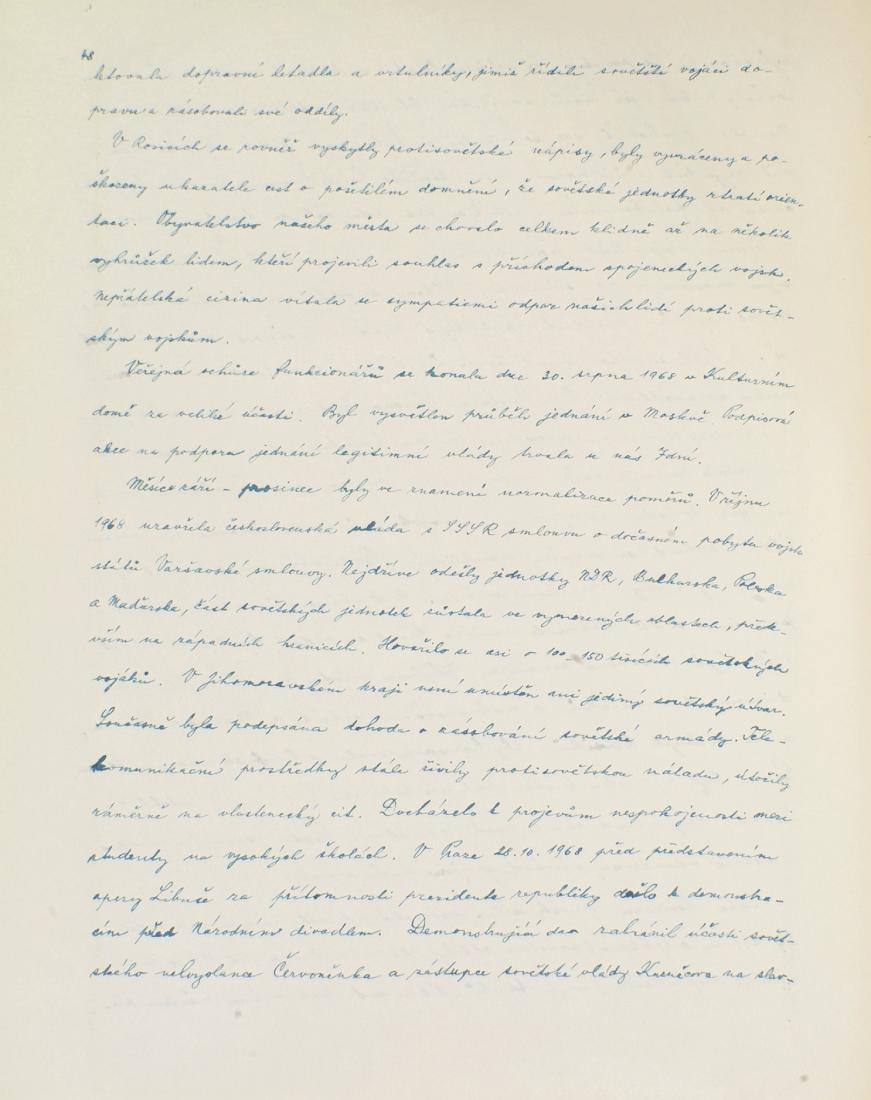 48
ktovala dopravní letadla a vrtulníky, jimiž řídili sovětští vojáci do-
pravu a zásobovali své oddíly.
V Rosicích se rovněž vyskytly protisovětské nápisy, byly vyvráceny a po-
škozeny ukazatele cest v pošetilém domnění, že sovětské jednotky ztratí orien-
taci. Obyvatelstvo našeho města se chovalo celkem klidně až na několik
vyhrůžek lidem, kteří projevili souhlas s příchodem spojeneckých vojsk.
Nepřátelská cizina vítala se sympatiemi odpor našich lidí proti sovět-
ským vojskům.
Veřejná schůze funkcionářů se konala dne 30. srpna 1968 v Kulturním
domě za veliké účasti. Byl vysvětlen průběh jednání v Moskvě. Podpisová
akce na podporu jednání legitimní vlády trvala u nás 7 dní.
Měsíce září - prosinec byly ve znamení normalizace poměrů. V říjnu
1968 uzavřela československá vláda s SSSR smlouvu o dočasném pobytu vojsk
států Varšavské smlouvy. Nejdříve odešly jednotky NDR, Bulharska, Polska
a Maďarska, část sovětských jednotek zůstala ve vymezených oblastech, přede-
vším na západních hranicích. Hovořilo se asi o 100-150 tisících sovětských
vojáků. V Jihomoravském kraji není umístěn ani jediný sovětský útvar.
Současně byla podepsána dohoda o zásobování sovětské armády. Tele-
komunikační prostředky stále šivily protisovětskou náladu, útočily
záměrně na vlastenecký cit. Docházelo k projevům nespokojenosti mezi
studenty na vysokých školách. V Praze 28.10. 1968 před představením
opery Libuše za přítomnosti presidenta republiky došlo k demonstra-
cím před Národním divadlem. Demonstrující dav zabránil účasti sovět-
ského velvyslance Červoněnka a zástupce sovětské vlády Kuzněcova na slav-